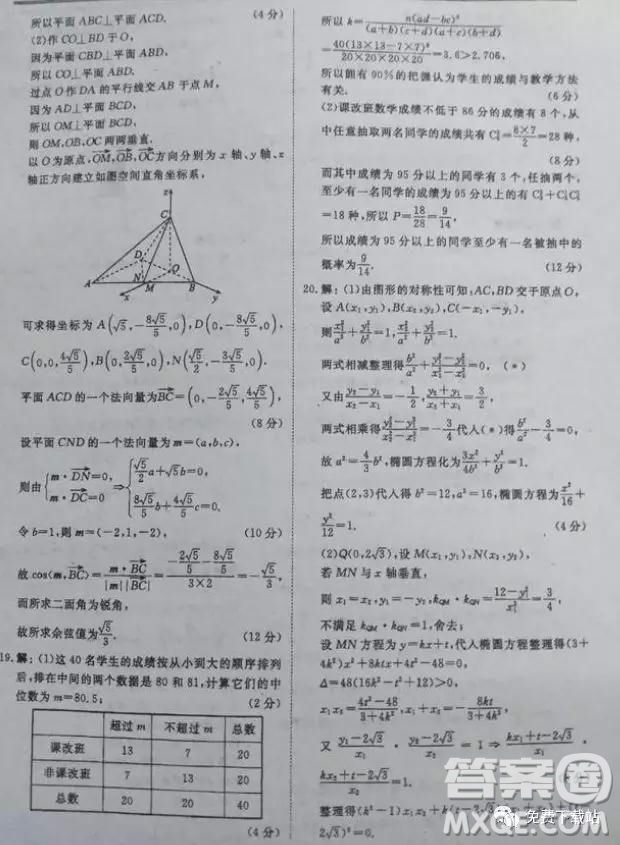 所以平面 ABC⊥平面 ACD. (4 分)
(2)作 CO⊥BD 于 O,
因为平面 CBD⊥平面 ABD,
所以 CO⊥平面 ABD.
过点 O 作 DA 的平行线交 AB 于点 M,
因为 AD⊥平面 BCD,
所以 OM⊥平面 BCD,
则 OM,OB,OC 两两垂直.
以 O 为原点,OM→,OB→,OC→方向分别为 x 轴、y 轴、z
轴正方向建立如图空间直角坐标系,
z
C
D
O
A
N
M
B
x
y
可求得坐标为 A(√5,-8√5/5,0),D(0,-8√5/5,0),
C(0,0,4√5/5),B(0,2√5/5,0),N(√5/2,-3√5/5,0).
平面 ACD 的一个法向量为BC→=(0,-2√5/5,4√5/5),
(8 分)
设平面 CND 的一个法向量为 m=(a,b,c),
则由{m·DN→=0, m·DC→=0 ⇒{√5/2a+√5b=0, 8√5/5b+4√5/5c=0.
令 b=1,则 m=(-2,1,-2), (10 分)
故 cos⟨m,BC→⟩=m·BC→/|m||BC→|=(-2√5/5-8√5/5)/(3×2)=-√5/3,
而所求二面角为锐角,
故所求余弦值为√5/3. (12 分)
19.解:(1)这 40 名学生的成绩按从小到大的顺序排列
后,排在中间的两个数据是 80 和 81,计算它们的中
位数为 m=80.5; (2 分)
超过 m 不超过 m 总数
课改班 13 7 20
非课改班 7 13 20
总数 20 20 40
(4 分)
所以 k=n(ad-bc)²/(a+b)(c+d)(a+c)(b+d)
=40(13×13-7×7)²/20×20×20×20=3.6>2.706,
所以能有 90%的把握认为学生的成绩与教学方法
有关. (6 分)
(2)课改班数学成绩不低于 86 分的有 8 个,从
中任意抽取两名同学的成绩共有 C²₈=8×7/2=28 种,
(8 分)
而其中成绩为 95 分以上的同学有 3 个,任抽两个,
至少有一名同学的成绩为 95 分以上的有 C²₃+C¹₃C¹₅
=18 种,所以 P=18/28=9/14,
所以成绩为 95 分以上的同学至少有一名被抽中的
概率为9/14. (12 分)
20.解:(1)由图形的对称性可知:AC,BD 交于原点 O,
设 A(x₁,y₁),B(x₂,y₂),C(-x₁,-y₁),
则x²₁/a²+y²₁/b²=x²₂/a²+y²₂/b²=1.
两式相减整理得b²/a²+(y²₂-y²₁)/(x²₂-x²₁)=0, (*)
又由(y₂-y₁)/(x₂-x₁)=-1/2,(y₂+y₁)/(x₂+x₁)=3/2,
两式相乘得(y²₂-y²₁)/(x²₂-x²₁)=-3/4代入(*)得b²/a²-3/4=0,
故 a²=4/3b²,椭圆方程化为3x²/4b²+y²/b²=1.
把点(2,3)代入得 b²=12,a²=16,椭圆方程为x²/16+
y²/12=1. (4 分)
(2)Q(0,2√3),设 M(x₁,y₁),N(x₂,y₂),
若 MN 与 x 轴垂直,
则 x₁=x₂,y₁=-y₂,kQM·kQN=(12-y²₁)/x²₁=3/4,
不满足 kQM·kQN=1,舍去;
设 MN 方程为 y=kx+t,代入椭圆方程整理得(3+
4k²)x²+8ktx+4t²-48=0,
Δ=48(16k²-t²+12)>0,
x₁x₂=(4t²-48)/(3+4k²),x₁+x₂=-8kt/(3+4k²),
又 (y₁-2√3)/x₁·(y₂-2√3)/x₂=1⇒(kx₁+t-2√3)/x₁·
(kx₂+t-2√3)/x₂=1,
整理得(k²-1)x₁x₂+k(t-2√3)(x₁+x₂)
2√3)²=0.
答案圈
MXQE.COM
免费下载站